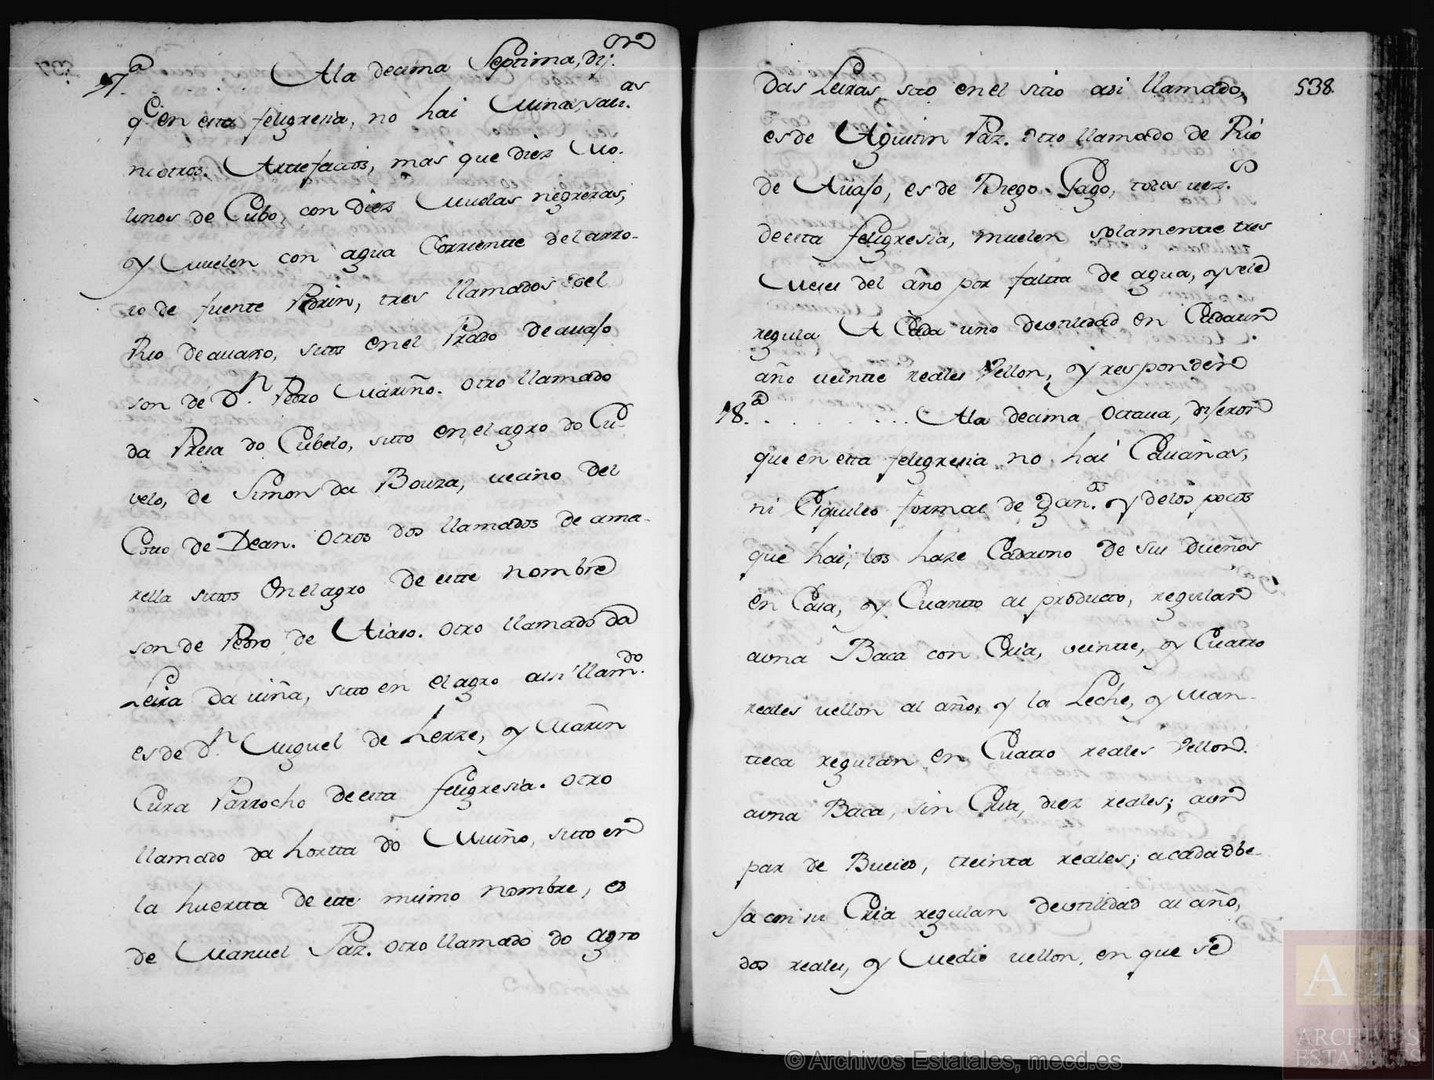 17.ª . . . . . . Ala decima Septima, dij.ron
q.e en esta feligresia, no hai Minas, sali.as
ni otros Arttefactos, mas que diez Mo-
linos de Cubo, con diez Muelas negreras,
y Muelen con agua Corriente del arro-
io de fuente Padrin, tres llamados del
Rio de auajo, sittos en el Prado de auajo
son de D.n Pedro Mariño. Otro llamado
da Presa do Cubelo, sitto en el agro do Cu-
velo, de Simon da Bouza, vecino del
Coto de Dean. Otros dos llamados de ama-
rella sittos en el agro de este nombre
son de Pedro de . Otro llamado da
Leira da viña, sitto en el agro asi llam.do
es de D.n Miguel de Lerze, y Marin
Cura Parrocho de esta feligresia. Otro
llamado da hortta do Muiño, sitto en
la huertta de este mismo nombre, es
de Manuel Paz. Otro llamado do agro
das Leiras sito en el sitio asi llamado, 538.
es de Agustin Paz. Otro llamado de Rio
de Auajo, es de Diego Gago, todos vez.os
de esta feligresia, muelen solamente tres
Meses del año por faltta de agua, y se le
regula A Cada uno de utilidad en Cada un
año veinte reales Vellon, y responden
18.ª . . . . . . . . Ala decima Octaua, dijeron
que en esta feligresia no hai Cauañas,
ni Esquileo formal de gan.os y de los pocos
que hai, los haze Cada uno de sus dueños
en Casa, y Cuantto al producto, regulan
a una Baca con Cria, veinte, y Cuatro
reales vellon al año, y la Leche, y Man-
tteca regulan en Cuatro reales Vellon.
a una Baca, sin Cria, diez reales; a un
par de Bueies, treinta reales; a cada obe-
ja con su Cria regulan de utilidad al año,
dos reales, y Medio vellon, en que se
© Archivos Estatales, mecd.es
AE
ARCHIVOS
ESTATALES